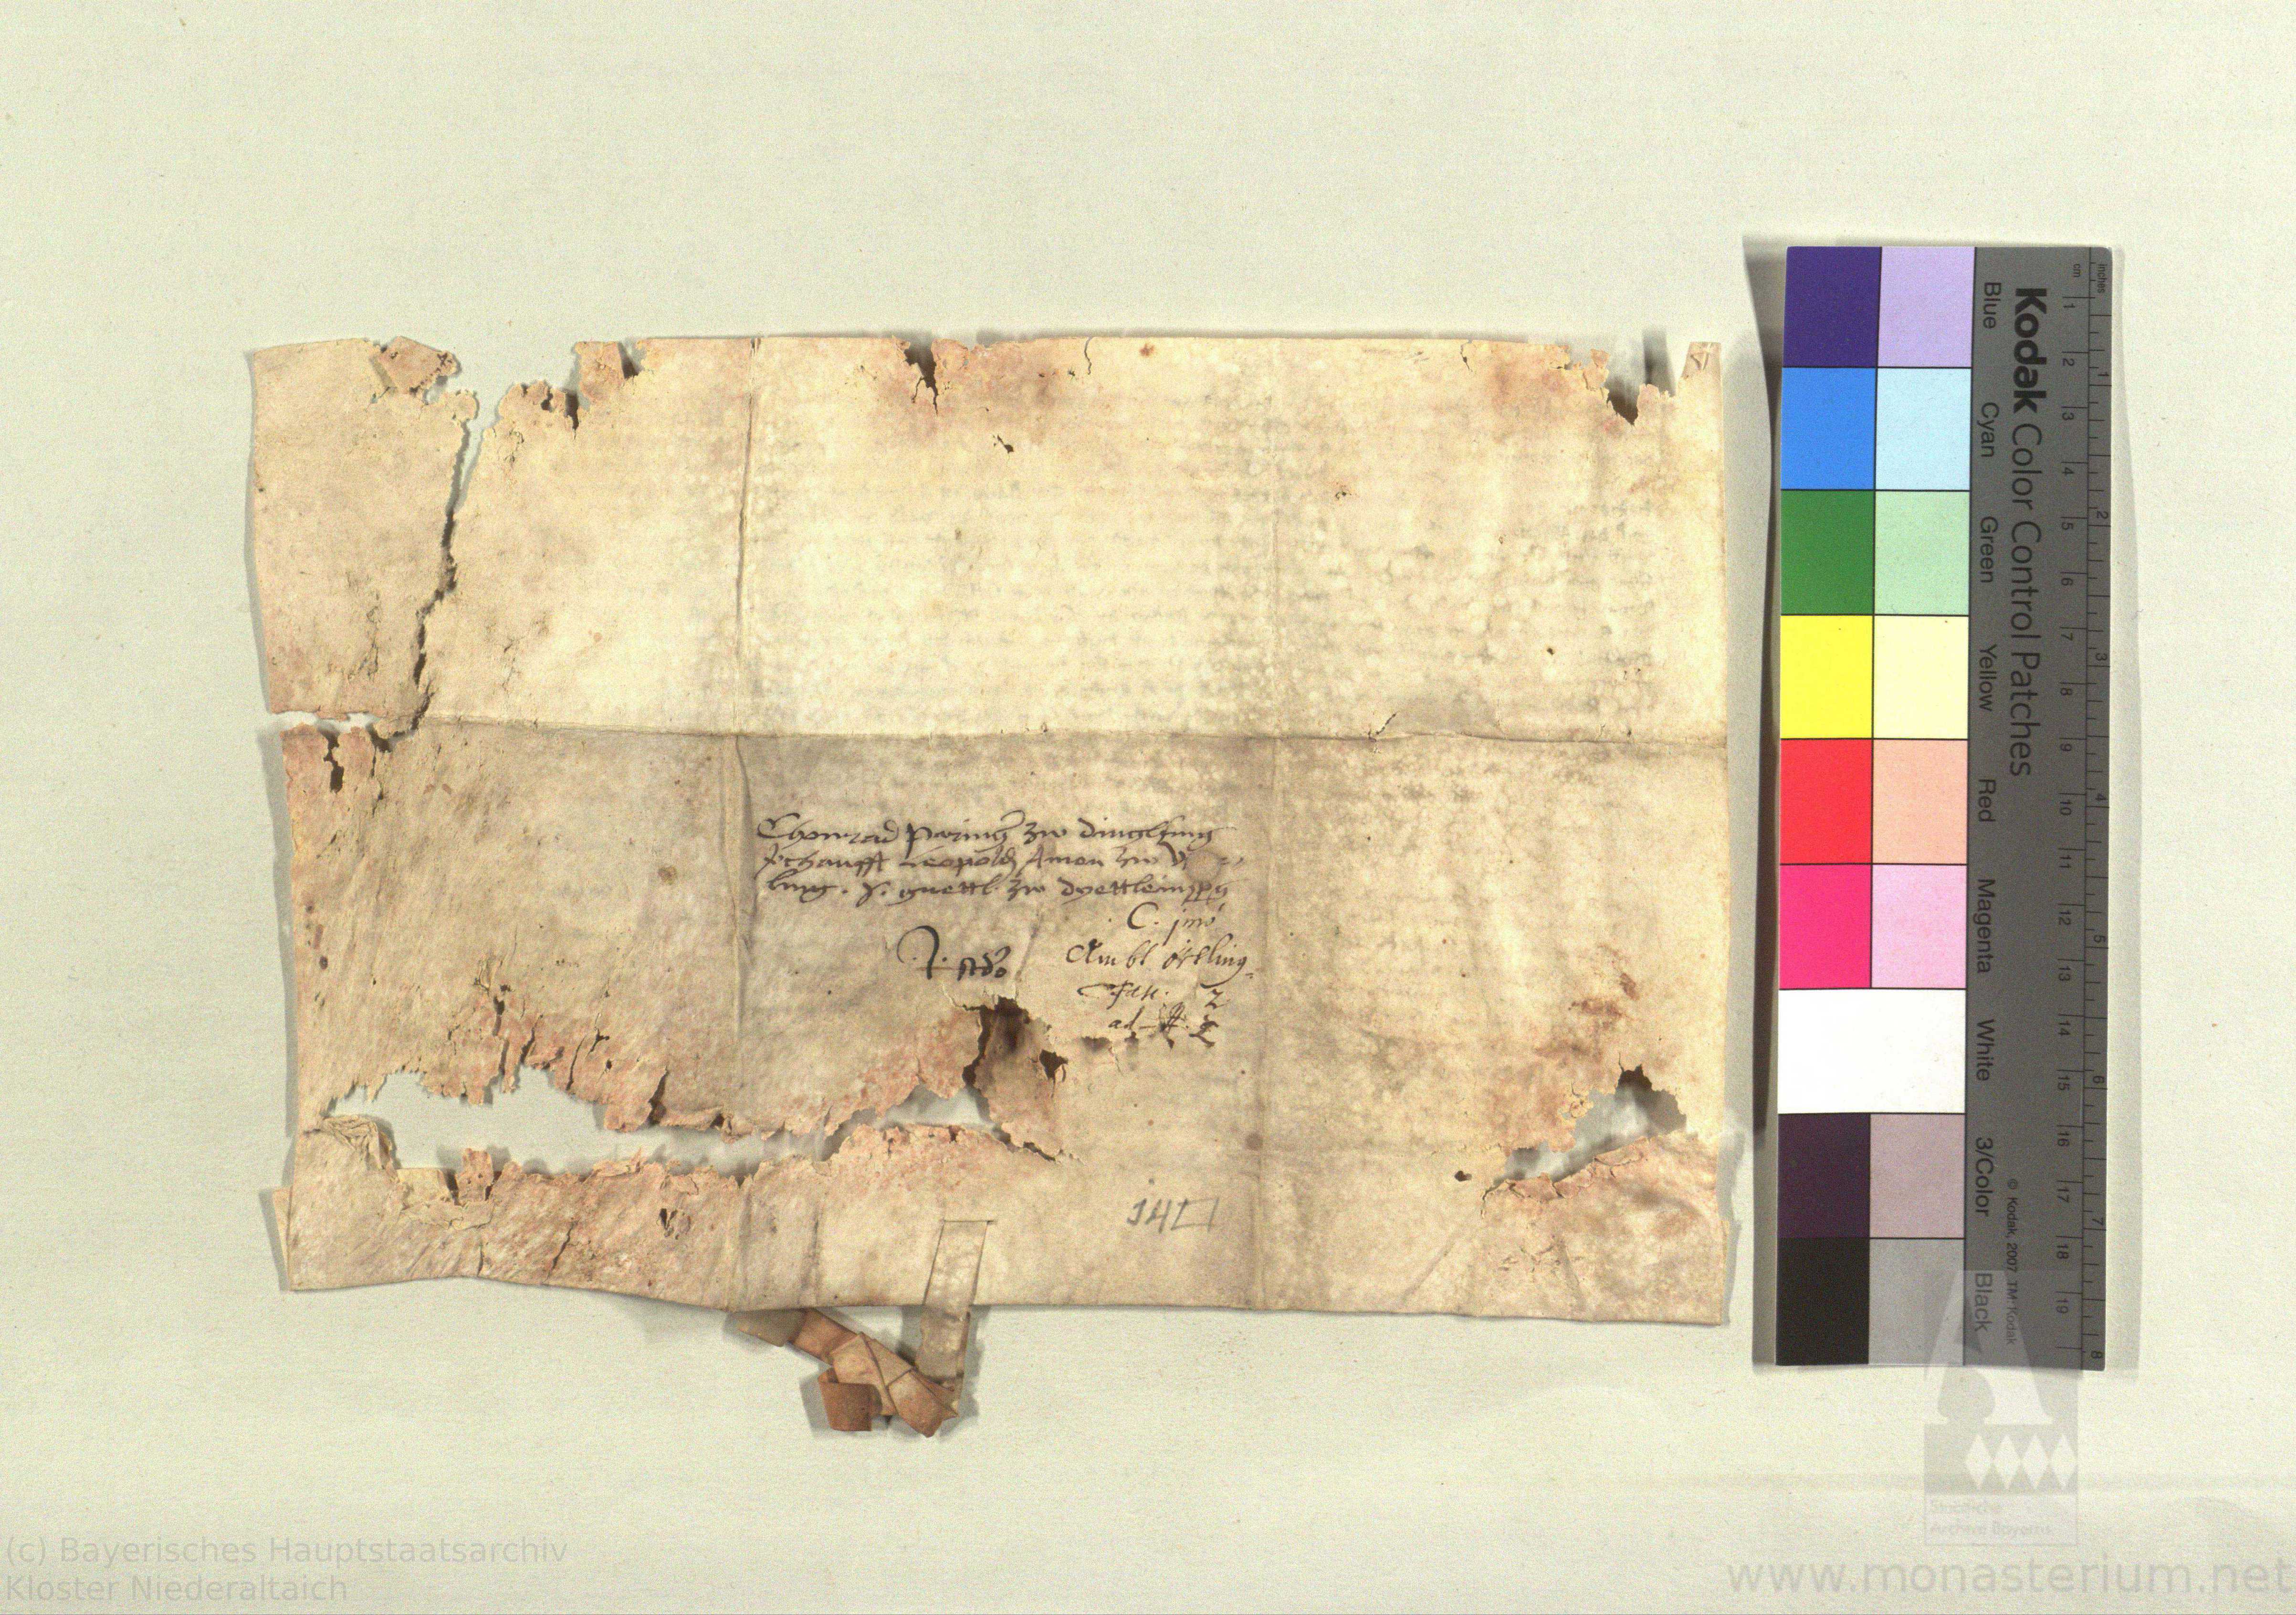 Chonrad Paringer zw dinglfing
leopold Amon zw
ling. s. guettl. zw dyettleinsperg
C. jmo
Ambl örling
Fasc. 2
ad N. 2
14
Kodak Color Control Patches
Blue Cyan Green Yellow Red Magenta White 3/Color Black
© Kodak, 2007 TM: Kodak
cm 1 2 3 4 5 6 7 8 9 10 11 12 13 14 15 16 17 18 19
inches 1 2 3 4 5 6 7 8
Staatliche
Archive Bayerns
(c) Bayerisches Hauptstaatsarchiv
Kloster Niederaltaich
www.monasterium.net